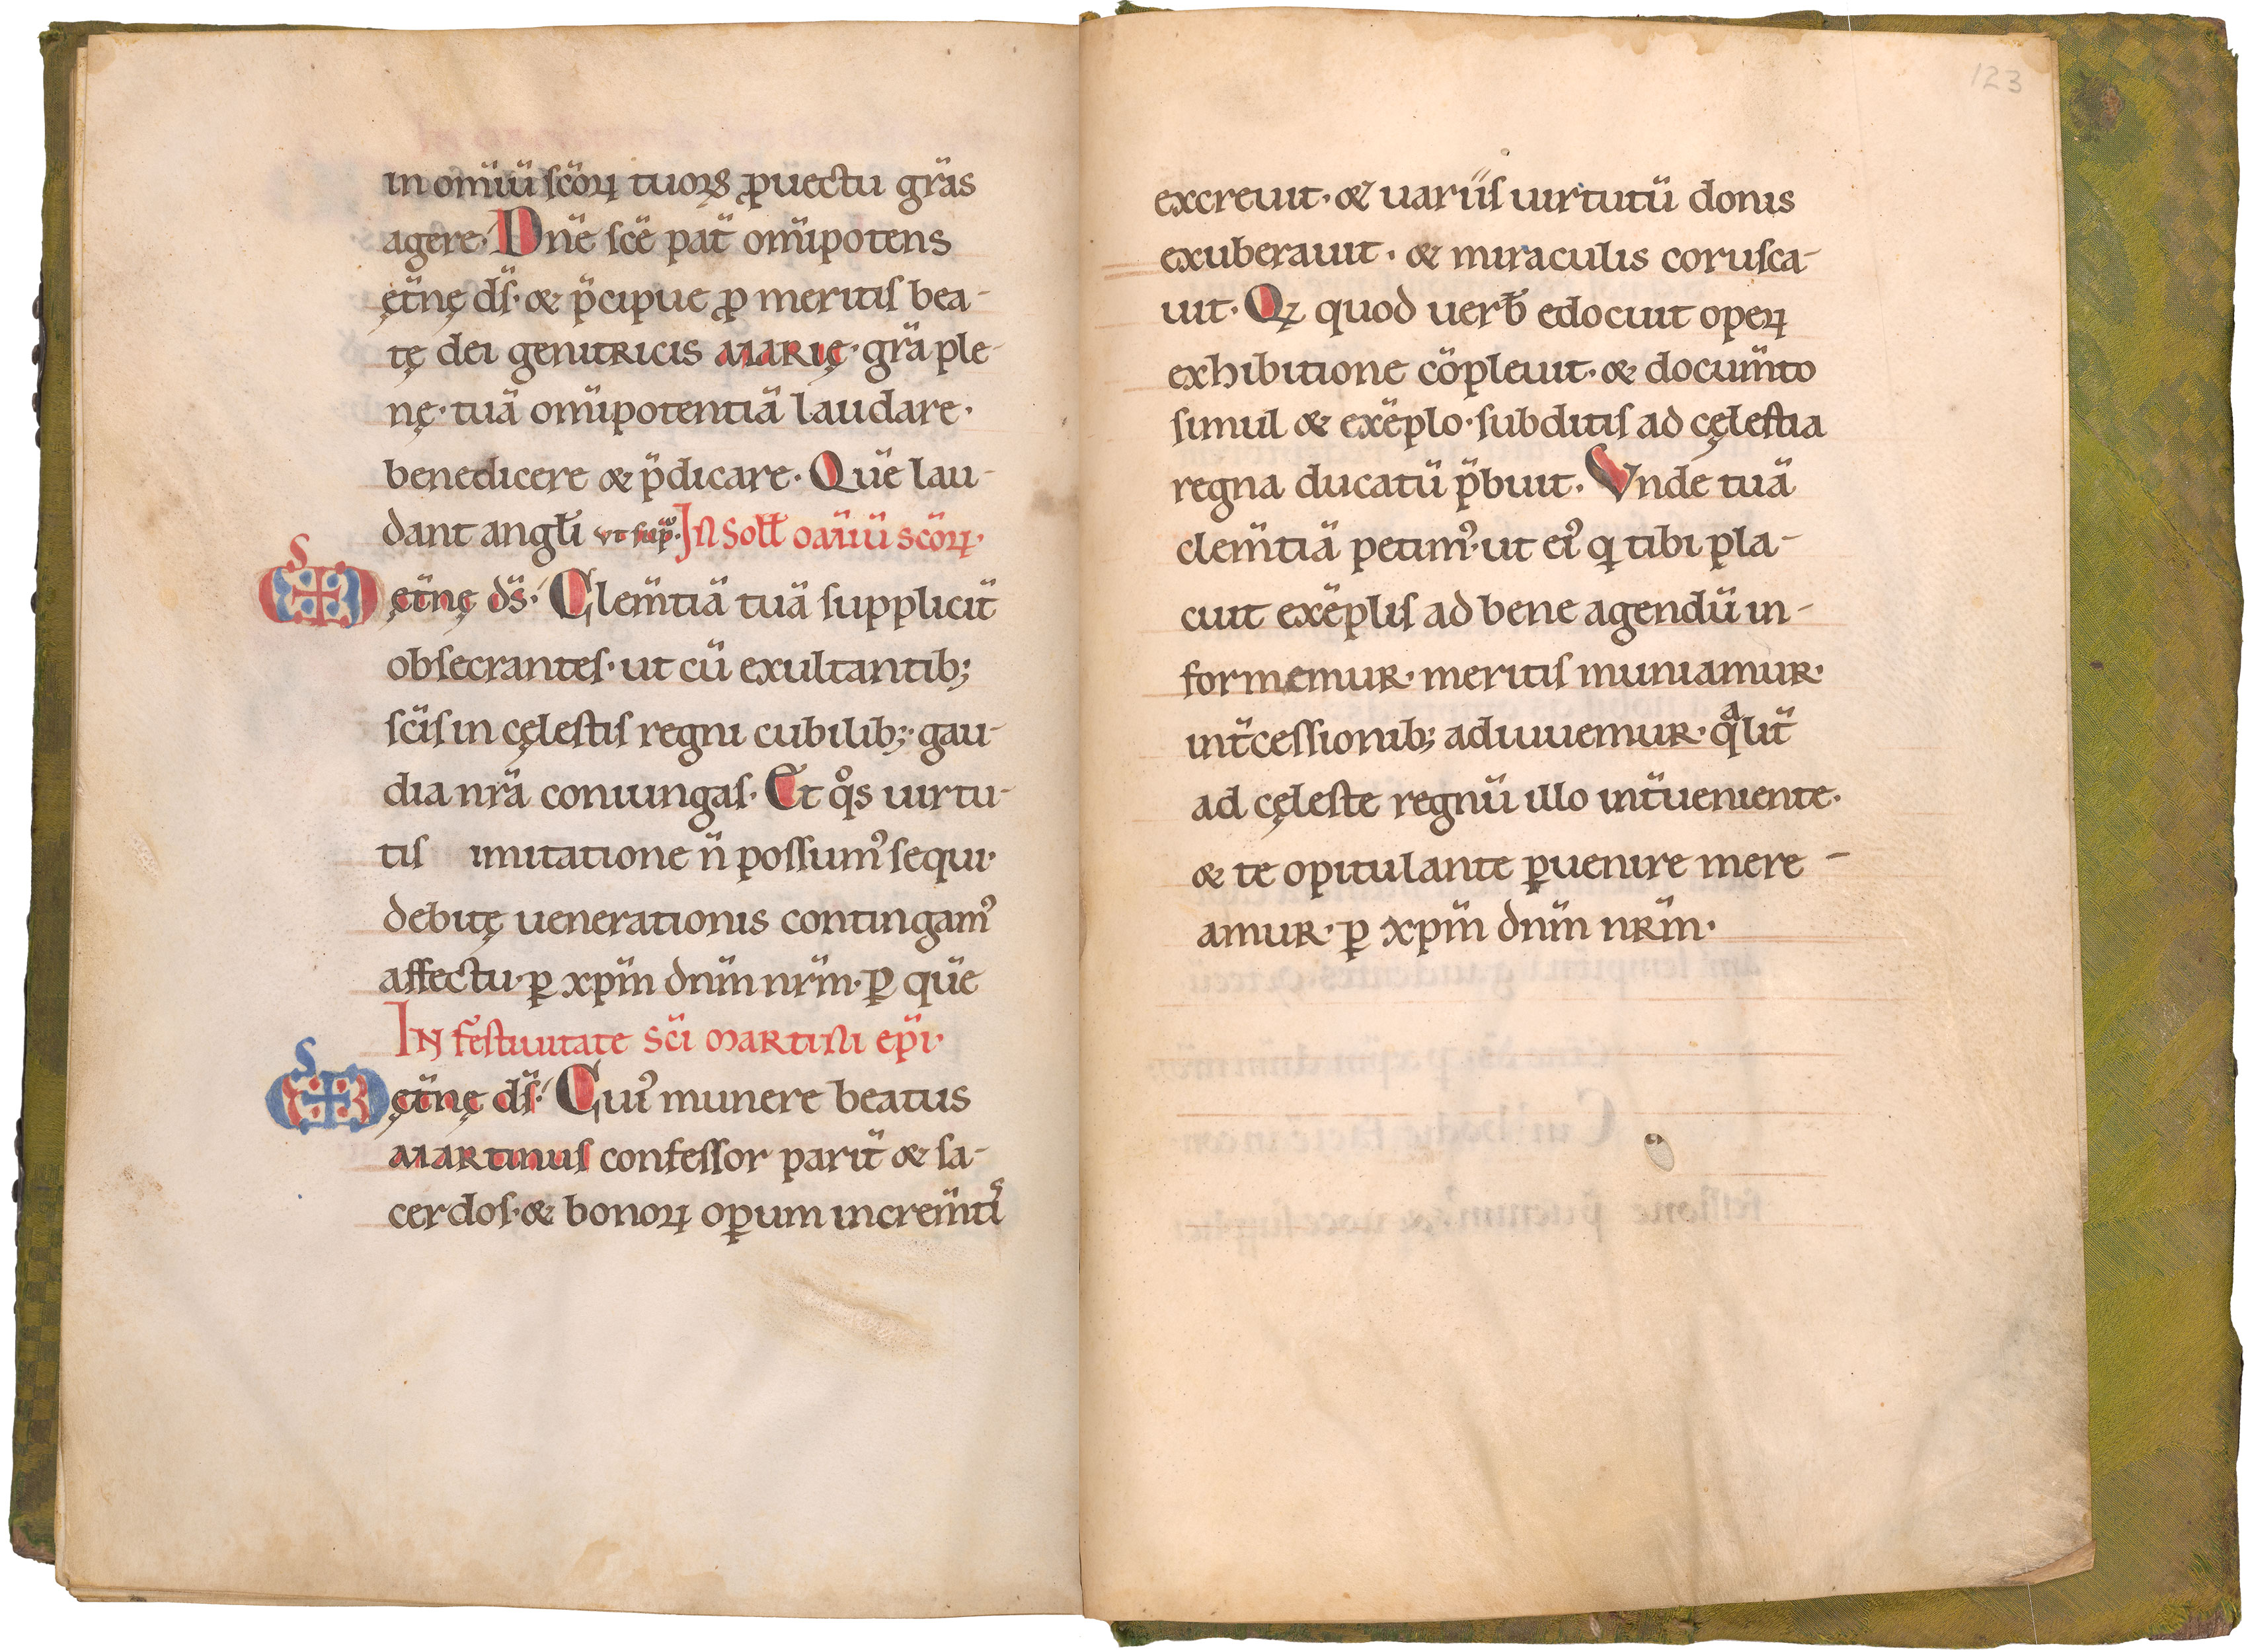 in om̅iu̅ sc̅oꝝ tuoꝝ ꝓuectu gr̅as
agere. Dn̅e sc̅e pat̅ om̅ipotens
ęt̅nę ds̅. & p̅cipue ꝓ meritis bea-
tę dei genitricis MARIĘ. gr̅a ple-
nę. tua̅ om̅ipotentia̅ laudare.
benedicere & p̅dicare. Que̅ lau-
dant angłi ut sup̅. In Sołł om̅iu̅ sc̅oꝝ.
S
ęt̅nę ds̅. Clem̅tia̅ tua̅ supplicit̅
obsecrantes. ut cu̅ exultantib;
sc̅is in cęlestis regni cubilib;. gau-
dia nr̅a coniungas. Et qͦs uirtu-
tis imitatione n̅ possumꝰ sequi.
debitę uenerationis contingamꝰ
affectu. ꝑ xp̅m dn̅m nr̅m. ꝑ que̅
In festiuitate sc̅i martini ep̅i.
S
ęt̅nę ds̅. Cuiꝰ munere beatus
MARTINUS confessor parit̅ & sa-
cerdos. & bonoꝝ oꝑum increm̅tis
123
excreuit. & uariis uirtutu̅ donis
exuberauit. & miraculis corusca-
uit. Qꝫ quod uerƀ edocuit opeꝝ
exhibitione co̅pleuit. & docum̅to
simul & exe̅plo. subditis ad cęlestia
regna ducatu̅ p̅buit. Vnde tua̅
clem̅tia̅ petimꝰ. ut eiꝰ q tibi pla-
cuit exe̅plis ad bene agendu̅ in-
formemur. meritis muniamur.
int̅cessionib; adiuuemur. qᵃlit̅
ad cęleste regnu̅ illo int̅ueniente.
& te opitulante ꝑuenire mere-
amur. ꝑ xp̅m dn̅m nr̅m.